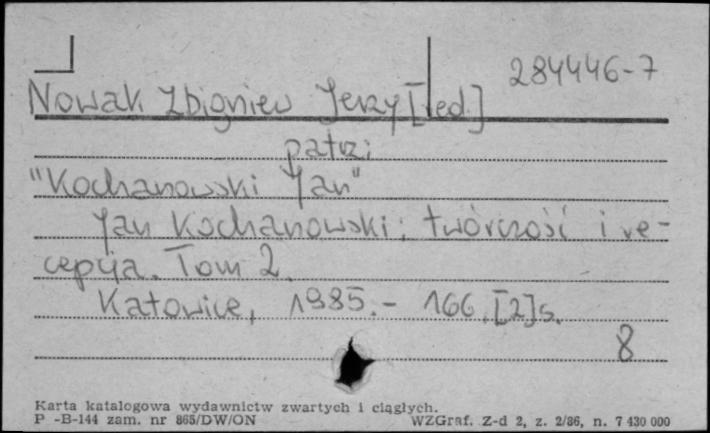 284446-7
Nowak Zbigniew Jerzy [red.]
patrz:
"Kochanowski Jan"
Jan Kochanowski: twórczość i re-
cepcja. Tom 2.
Katowice, 1985.- 166, [2]s.
8
Karta katalogowa wydawnictw zwartych i ciągłych.
P -B-144 zam. nr 865/DW/ON WZGraf. Z-d 2, z. 2/86, n. 7 430 000